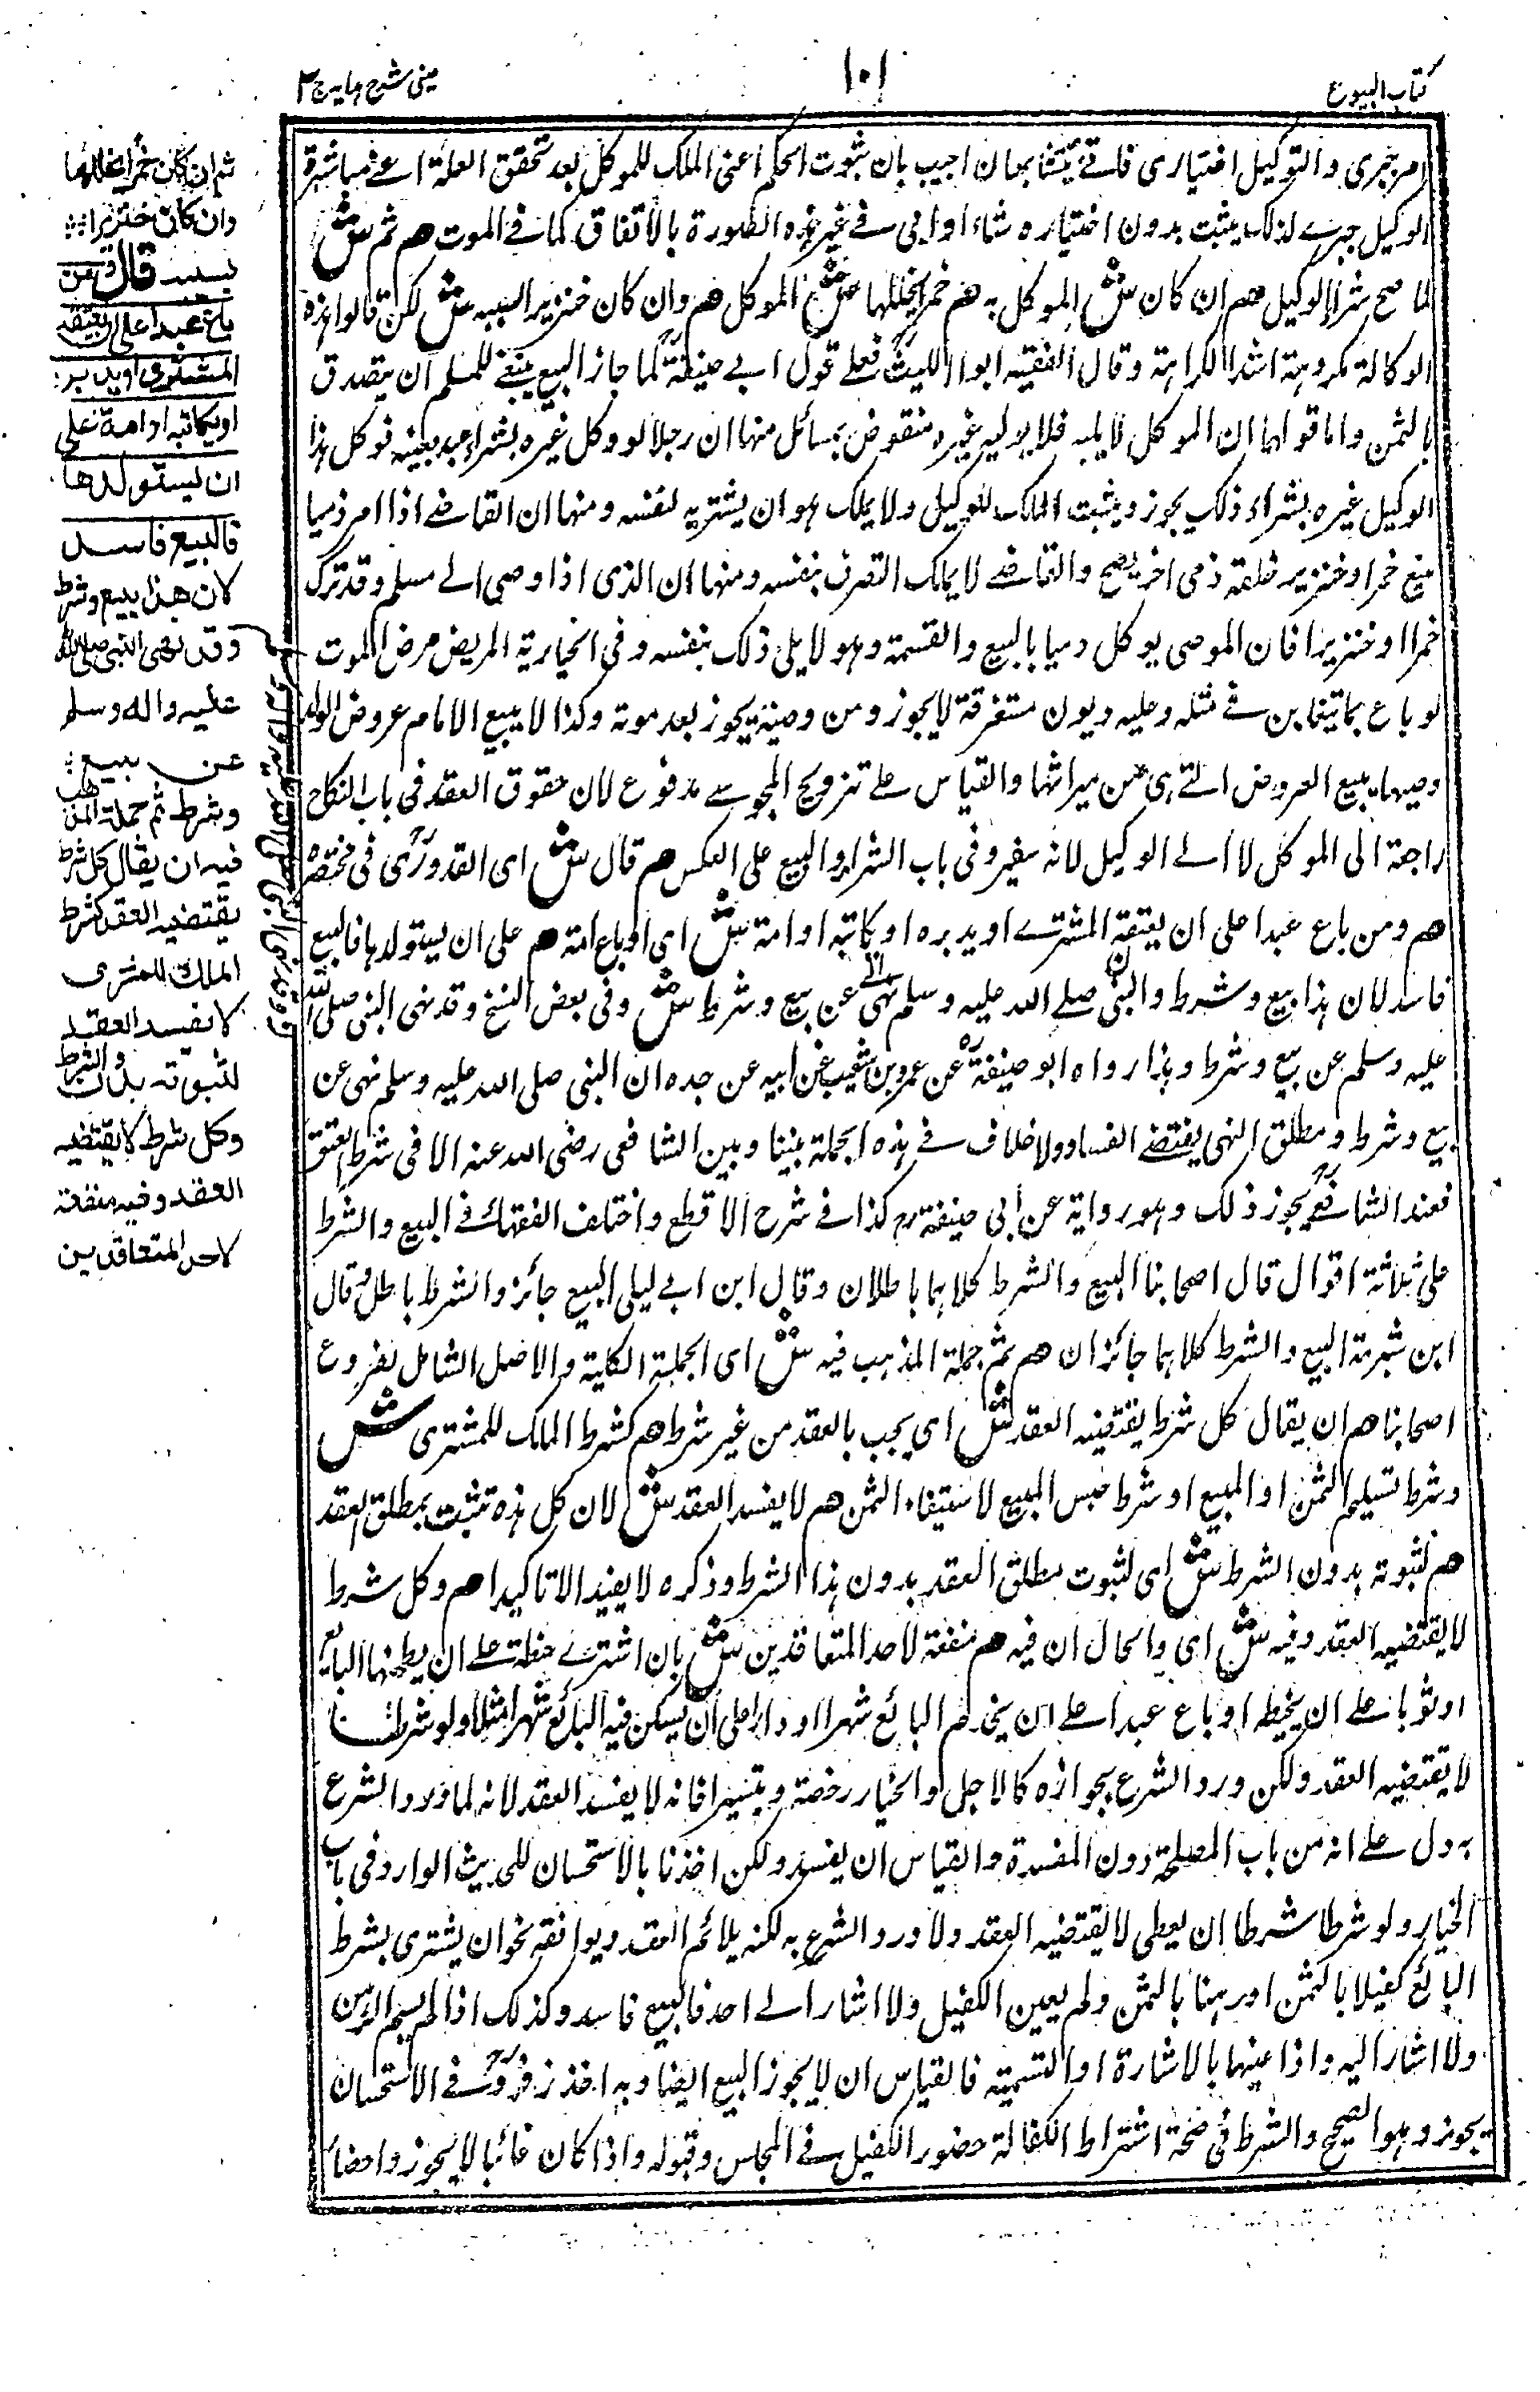 كتاب البيوع
١٠١
عينى شرح هدايه ج ٣
امر جبرى والتوكيل اختيارى فانى يتشابهان اجيب بان ثبوت الحكم اعنى الملك للموكل بعد تحقق العلة اعنى مباشرة
الوكيل جبرى لذلك يثبت بدون اختياره شاء او ابى فى غير هذه الصورة بالاتفاق كما فى الموت هم ثم ش
لما صح شراء الوكيل هم ان كان ش الموكل به هم خمرا يخللها ش الموكل هم وان كان خنزيرا يسيبه ش لكن قالوا هذه
الوكالة مكروهة اشد الكراهة وقال الفقيه ابو الليث فعلى قول ابى حنيفة لما جاز البيع ينبغى للمسلم ان يتصدق
بالثمن واما قولهما ان الموكل لا يليه فلا يوليه غيره منقوض بمسائل منها ان رجلا لو وكل غيره بشراء عبد بعينه فوكل هذا
الوكيل غيره بشراء ذلك يجوز ويثبت الملك للوكيل ولا يملك هو ان يشتريه لنفسه ومنها ان القاضى اذا امر ذميا
ببيع خمر او خنزير خلفه ذمى اخر يصح والقاضى لا يملك التصرف بنفسه ومنها ان الذمى اذا وصى الى مسلم وقد ترك
خمرا او خنزيرا فان الموصى يوكل دميا بالبيع والقسمة وهو لا يلى ذلك بنفسه وفى الخيارية المريض مرض الموت
لو باع بما يتغابن فى مثله وعليه ديون مستغرقة لا يجوز ومن وصيه يجوز بعد موته وكذا لا يبيع الامام عروض الولد
وصيها يبيع العروض التى هى من ميراثها والقياس على تزويج المجوسى مدفوع لان حقوق العقد فى باب النكاح
راجعة الى الموكل لا الى الوكيل لانه سفير وفى باب الشراء والبيع على العكس هم قال ش اى القدورى فى مختصره
هم ومن باع عبدا على ان يعتقه المشترى او يدبره او يكاتبه او امة ش اى او باع امة هم على ان يستولدها فالبيع
فاسد لان هذا بيع وشرط والنبى صلى الله عليه وسلم نهى عن بيع وشرط ش وفى بعض النسخ وقد نهى النبى صلى الله
عليه وسلم عن بيع وشرط وهذا رواه ابو حنيفة عن عمرو بن شعيب عن ابيه عن جده ان النبى صلى الله عليه وسلم نهى عن
بيع وشرط ومطلق النهى يقتضى الفساد ولا خلاف فى هذه الجملة بيننا وبين الشافعى رضى الله عنه الا فى شرط العتق
فعند الشافعى يجوز ذلك وهو رواية عن ابى حنيفة رح كذا فى شرح الاقطع واختلف الفقهاء فى البيع والشرط
على ثلاثة اقوال قال اصحابنا البيع والشرط كلاهما باطلان وقال ابن ابى ليلى البيع جائز والشرط باطل وقال
ابن شبرمة البيع والشرط كلاهما جائزان هم ثم جملة المذهب فيه ش اى الجملة الكلية والاصل الشامل لفروع
اصحابنا هم ان يقال كل شرط يقتضيه العقد ش اى يجب بالعقد من غير شرط هم كشرط الملك للمشترى ش
وشرط تسليم الثمن او المبيع او شرط حبس المبيع لاستيفاء الثمن هم لا يفسد العقد ش لان كل هذه تثبت بمطلق العقد
هم لثبوته بدون الشرط ش اى لثبوت مطلق العقد بدون هذا الشرط وذكره لا يفيد الا تاكيدا هم وكل شرط
لا يقتضيه العقد وفيه ش اى والحال ان فيه هم منفعة لاحد المتعاقدين ش بان اشترى حنطة على ان يطحنها البائع
او ثوبا على ان يخيطه او باع عبدا على ان يخدم البائع شهرا او دارا على ان يسكن فيه البائع شهرا مثلا ولو شرطا
لا يقتضيه العقد ولكن ورد الشرع بجوازه كالاجل والخيار رخصة وتيسيرا فانه لا يفسد العقد لانه لما ورد الشرع
به دل على انه من باب المصلحة دون المفسدة والقياس ان يفسد ولكن اخذنا بالاستحسان للحديث الوارد فى باب
الخيار ولو شرطا شرطا ان يعطى لا يقتضيه العقد ولا ورد الشرع به لكنه يلائم العقد ويوافقه نحو ان يشترى بشرط
البائع كفيلا بالثمن او رهنا بالثمن ولم يعين الكفيل ولا اشار الى احد فالبيع فاسد وكذلك اذا لم يسم الرهن
ولا اشار اليه واذا عينها بالاشارة او التسمية فالقياس ان لا يجوز البيع ايضا وبه اخذ زفر وفى الاستحسان
يجوز وهو الصحيح والشرط فى صحة اشتراط الكفالة حضور الكفيل فى المجلس وقبوله واذا كان غائبا لا يجوز واحضا
ثم ان كان خمرا يخللها
وان كان خنزيرا
يسيبه قال ومن
باع عبدا على ان يعتقه
المشترى او يدبره
او يكاتبه او امة على
ان يستولدها
فالبيع فاسد
لان هذا بيع وشرط
وقد نهى النبى صلى الله
عليه واله وسلم
عن بيع
وشرط ثم جملة المذهب
فيه ان يقال كل شرط
يقتضيه العقد كشرط
الملك للمشترى
لا يفسد العقد
لثبوته بدون الشرط
وكل شرط لا يقتضيه
العقد وفيه منفعة
لاحد المتعاقدين